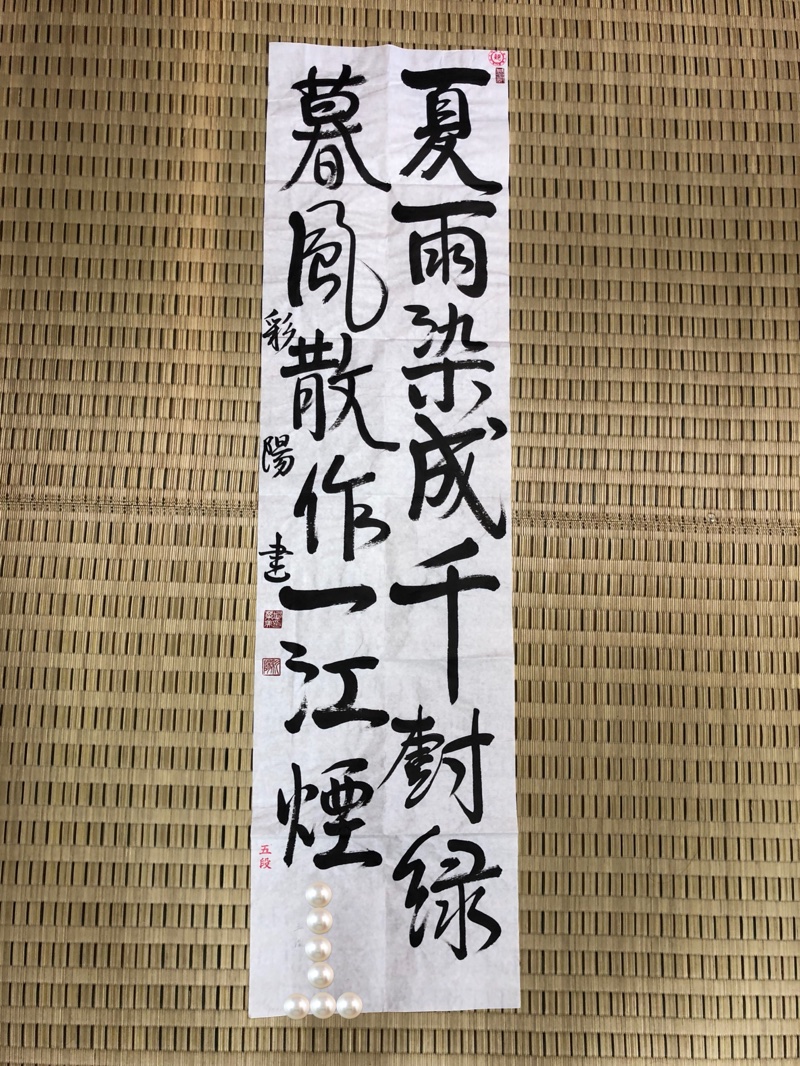 夏雨染成千樹緑
暮風散作一江煙
彩陽書
五段